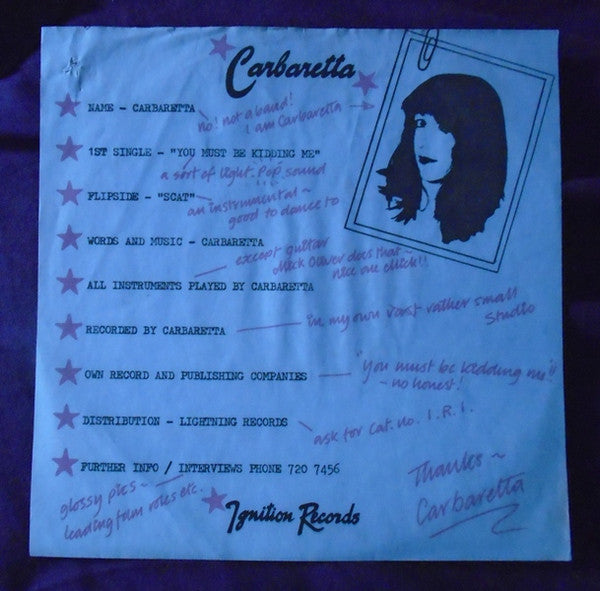 Carbaretta
NAME - CARBARETTA
no! not a band!
I am Carbaretta
1ST SINGLE - "YOU MUST BE KIDDING ME"
a sort of light Pop sound
FLIPSIDE - "SCAT"
an instrumental ~
good to dance to
WORDS AND MUSIC - CARBARETTA
except guitar
Mick Oliver does that -
nice one Mick!!
ALL INSTRUMENTS PLAYED BY CARBARETTA
in my own vast rather small
Studio
RECORDED BY CARBARETTA
OWN RECORD AND PUBLISHING COMPANIES
"You must be kidding me"!!
~ no honest!
DISTRIBUTION - LIGHTNING RECORDS
ask for Cat. no. I.R.1.
FURTHER INFO / INTERVIEWS PHONE 720 7456
glossy pics ~
leading film roles etc.
Thanks ~
Carbaretta
Ignition Records